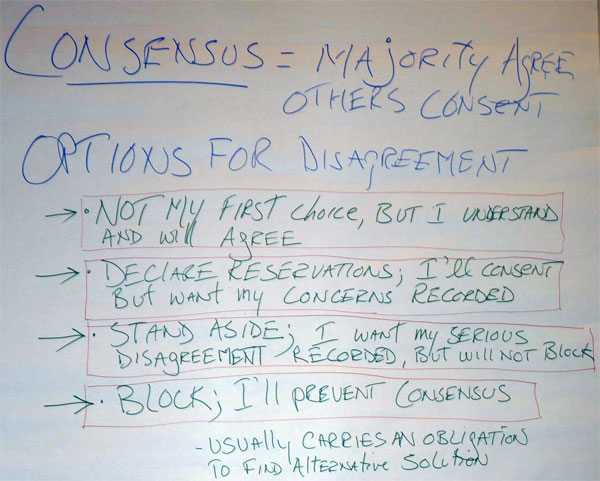 CONSENSUS = MAJORITY AGREE
OTHERS CONSENT
OPTIONS FOR DISAGREEMENT
→ • NOT MY FIRST CHOICE, BUT I UNDERSTAND
AND WILL AGREE
→ • DECLARE RESERVATIONS; I'LL CONSENT
BUT WANT MY CONCERNS RECORDED
→ • STAND ASIDE; I WANT MY SERIOUS
DISAGREEMENT RECORDED, BUT WILL NOT BLOCK
→ • BLOCK; I'LL PREVENT CONSENSUS
- USUALLY CARRIES AN OBLIGATION
TO FIND ALTERNATIVE SOLUTION